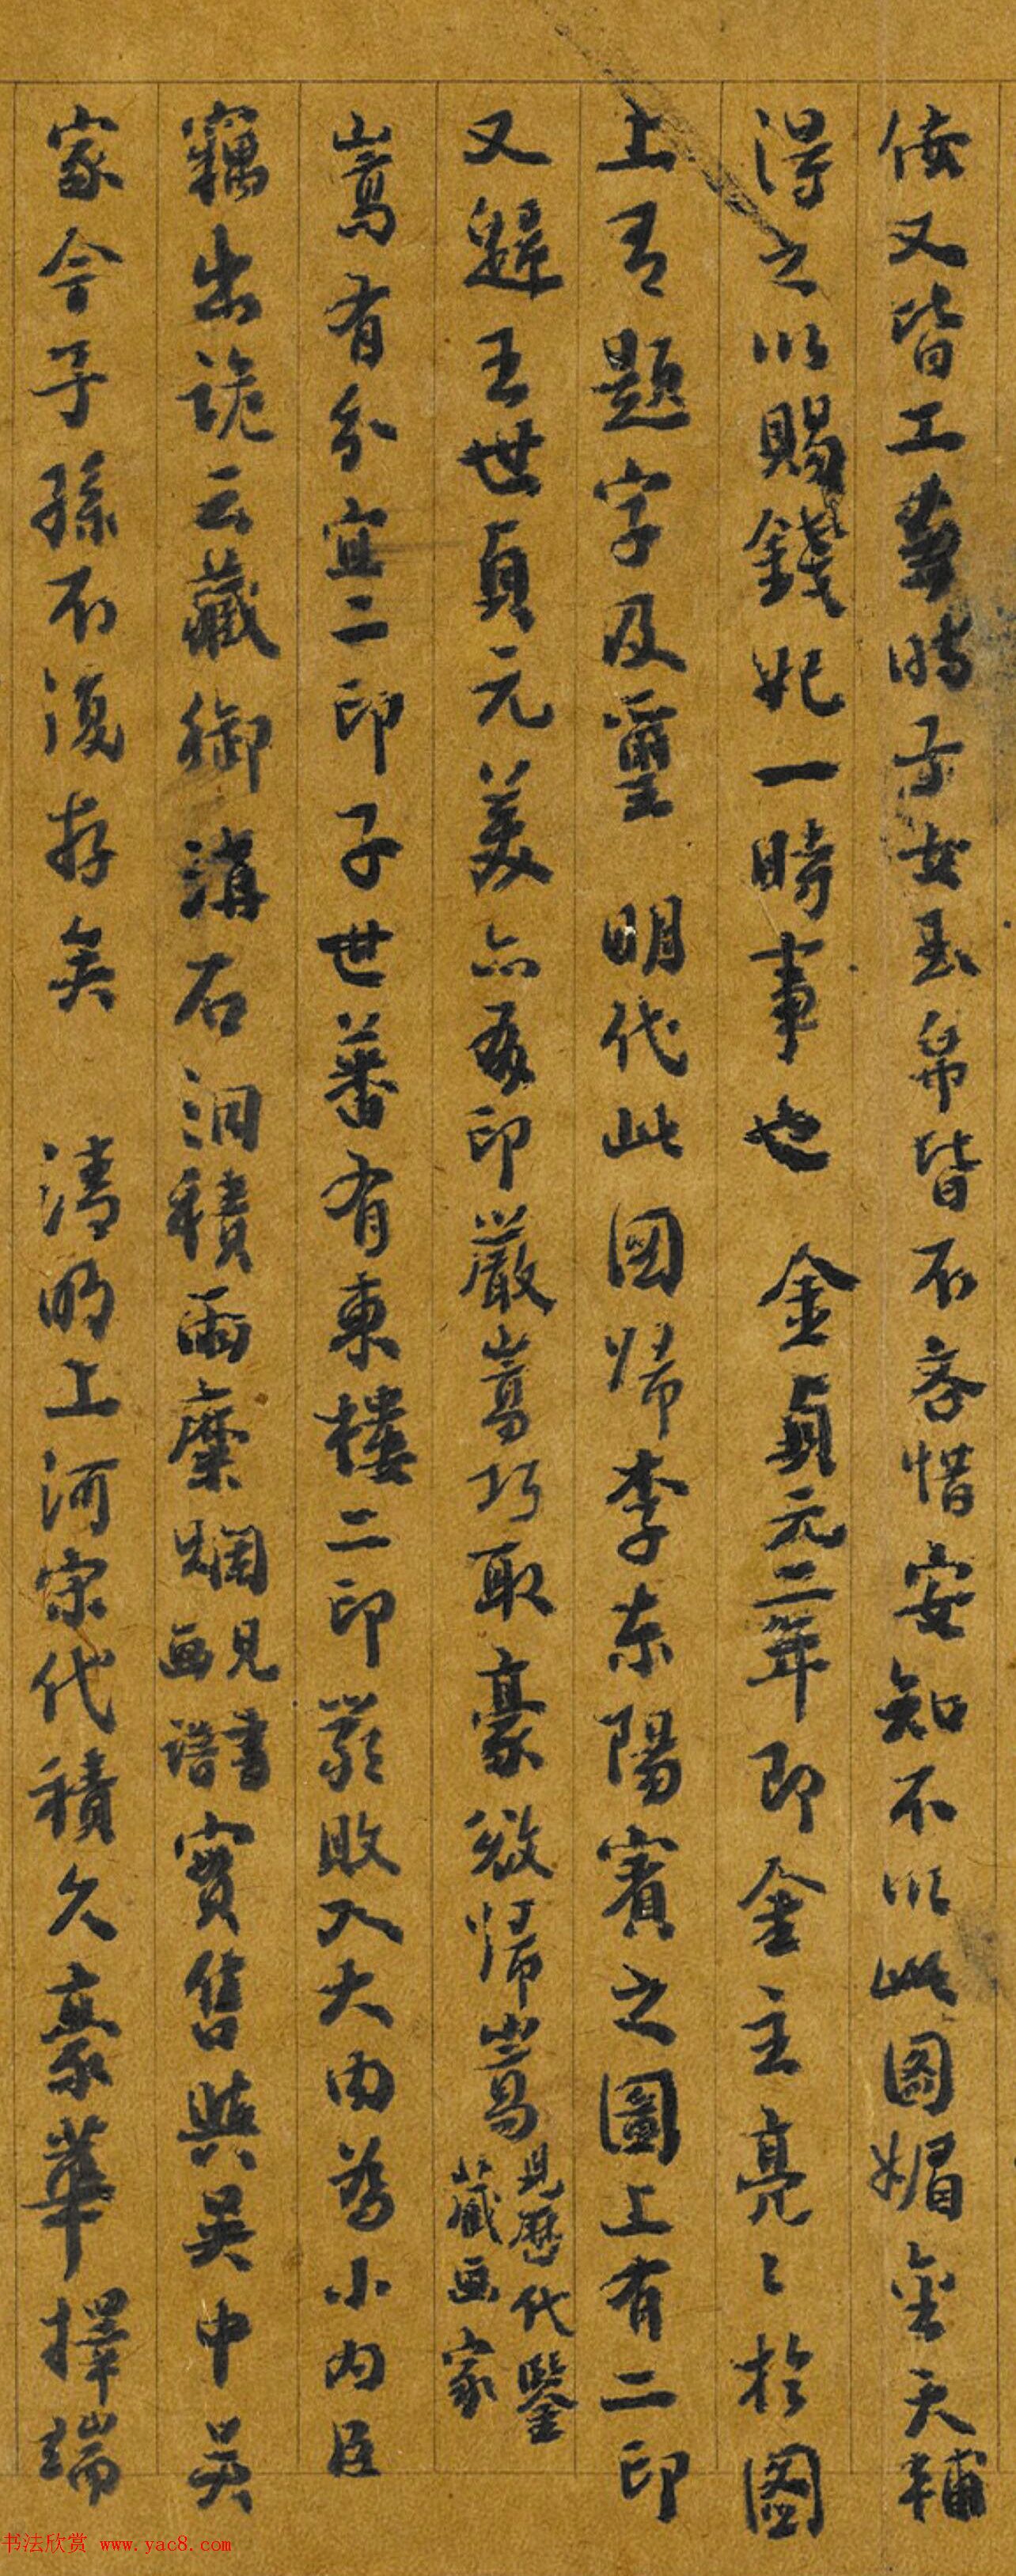 倭又皆工畫時子女玉帛皆不吝惜安知不以此圖媚金天輔
得之以賜錢妃一時事也 金貞元二年即金主亮亮於圖
上有題字及璽 明代此図歸李東陽賓之圖上有二印
又歸王世貞元美亦有印嚴嵩巧取豪奪歸嵩見歷代鑒藏画家
嵩有分宜二印子世蕃有東樓二印嚴敗入大內為小內臣
竊出詭云藏御溝石洞積雨糜爛見書画譜實售與吳中吳
家今子孫不復存矣 清明上河宋代積久豪華擇端
书法欣赏 www.yac8.com